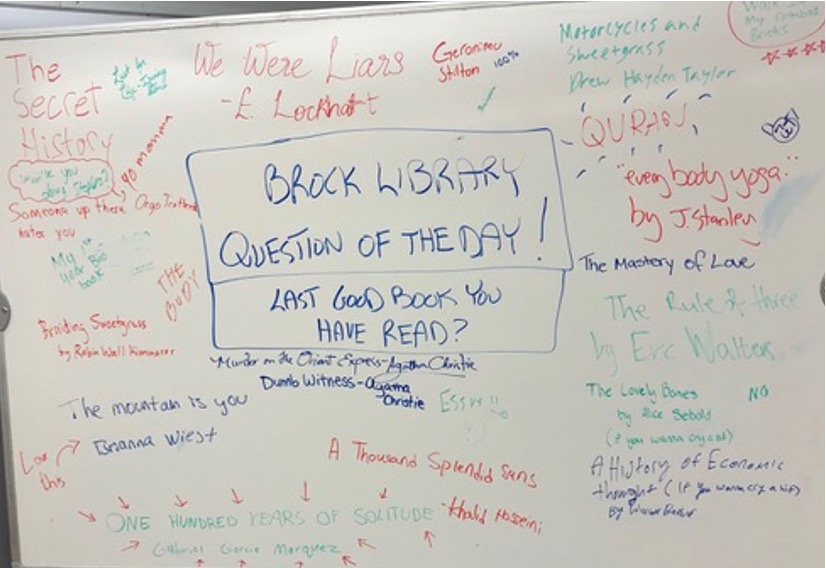 The
Secret
History
We Were Liars
-E. Lockhart
Geronimo
Stilton 100%
Motorcycles and
Sweetgrass
Drew Hayden Taylor
My
Books
QURAN
"every body yoga"
by J. Stanley
Someone up there
hates you
My 1st
year Bio
book
THE
BODY
Braiding Sweetgrass
by Robin Wall Kimmerer
BROCK LIBRARY
QUESTION OF THE DAY!
LAST GOOD BOOK YOU
HAVE READ?
Murder on the Orient Express - Agatha Christie
Dumb Witness - Agatha
Christie
The Mastery of Love
The Rule of three
by Eric Walters
The Lovely Bones
by Alice Sebold
(if you wanna cry a lot)
NO
A History of Economic
thought (If you wanna cry a lot)
By
The mountain is you
Brianna Wiest
Love
this
A Thousand Splendid Suns
- Khalid Hosseini
ONE HUNDRED YEARS OF SOLITUDE
Gabriel Garcia Marquez